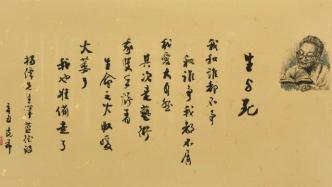 生与死
我和谁都不争
和谁争我都不屑
我爱大自然
其次是艺术
我双手烤着
生命之火取暖
火萎了
我也准备走了
杨绛先生译蓝德诗